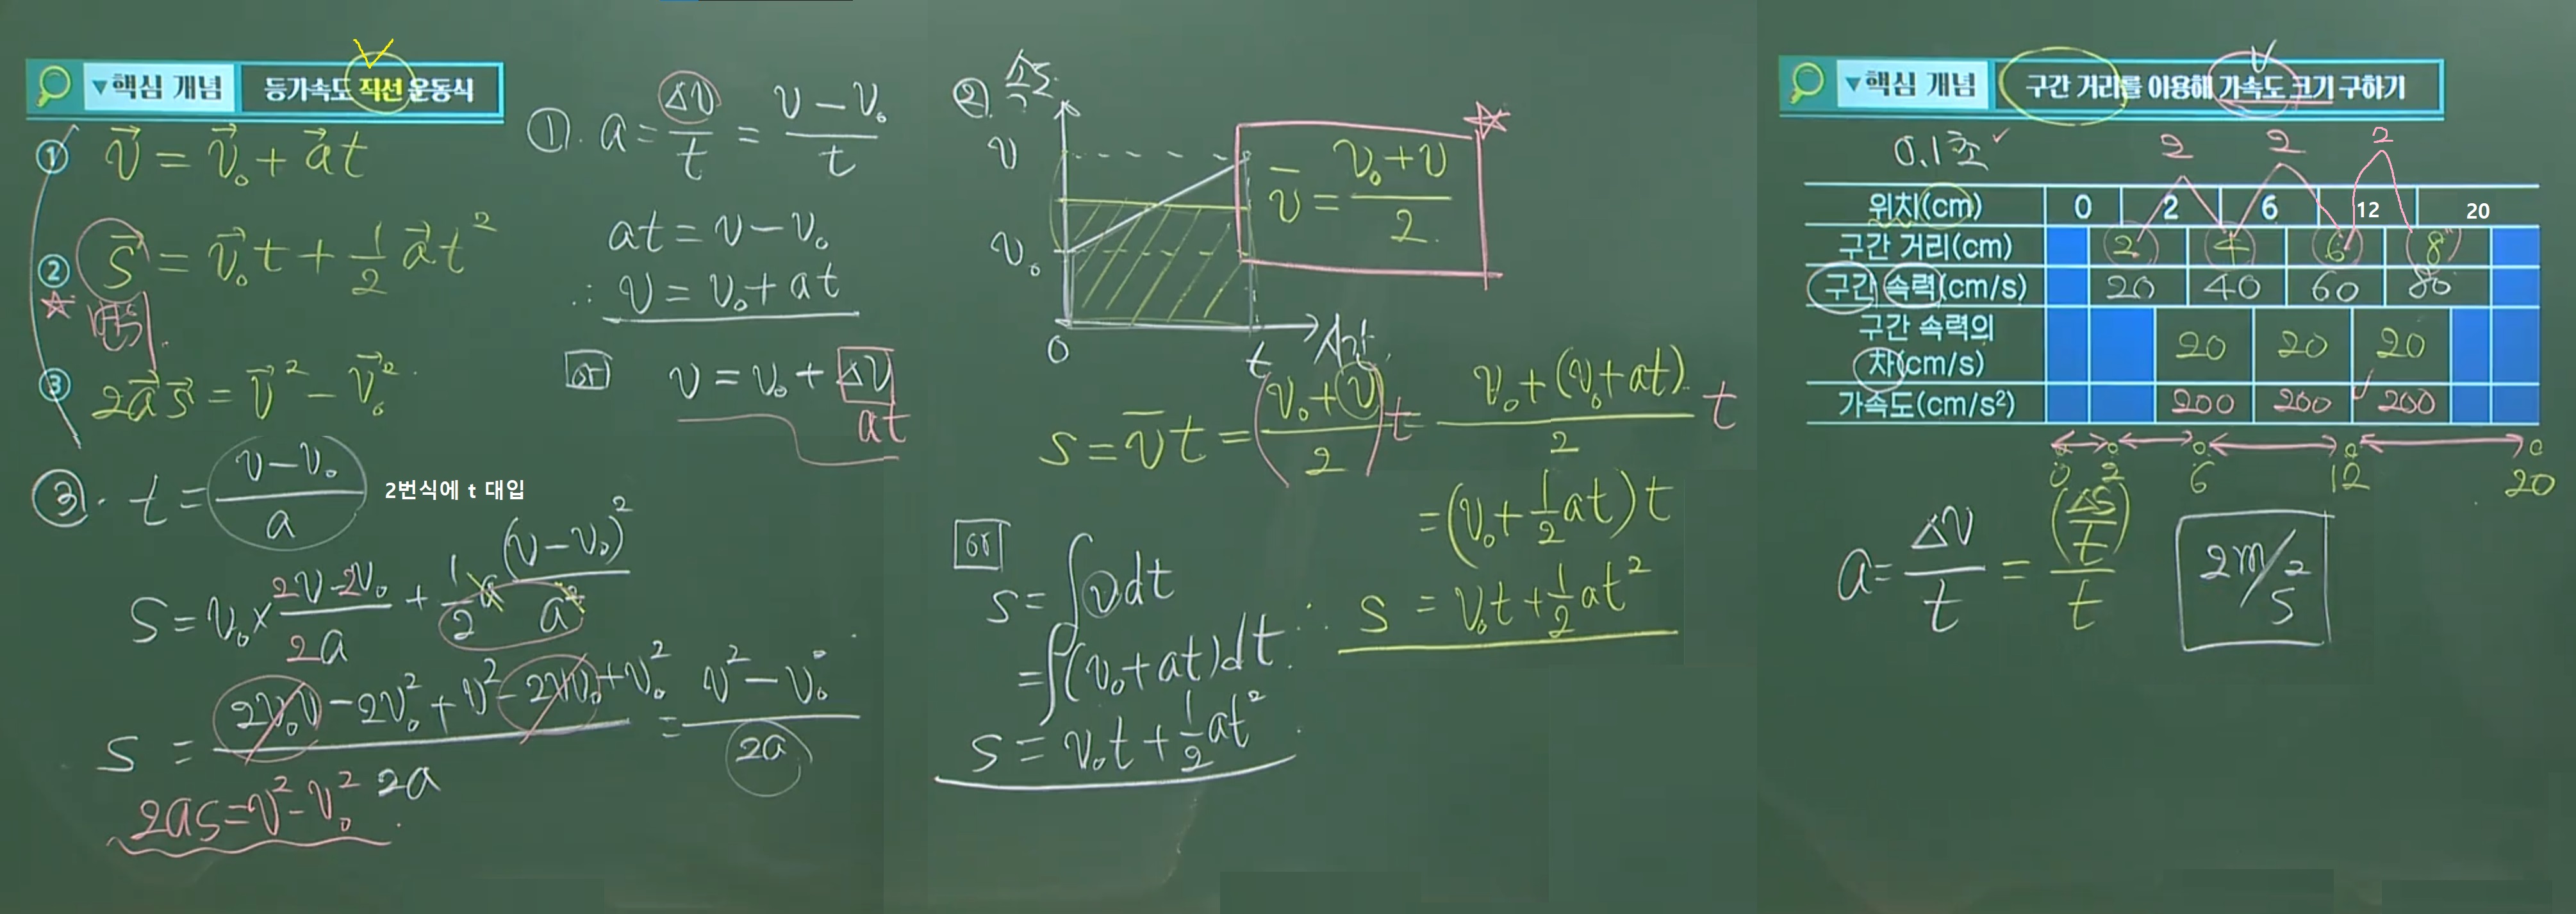 ▼핵심 개념 등가속도 직선 운동식
① v⃗ = v⃗₀ + a⃗t
② s⃗ = v⃗₀t + 1/2 a⃗t²
변위
③ 2a⃗s⃗ = v⃗² − v⃗₀²
③. t = (v−v₀)/a 2번식에 t 대입
S = v₀ × (2v−2v₀)/2a + 1/2 a (v−v₀)²/a²
S = (2v₀v − 2v₀² + v² − 2vv₀ + v₀²)/2a = (v² − v₀²)/2a
2as = v² − v₀²
①. a = Δv/t = (v − v₀)/t
at = v − v₀
∴ v = v₀ + at
or v = v₀ + Δv
at
②. 속도
v
v₀
0 t 시간
v̄ = (v₀+v)/2
s = v̄t = ((v₀+v)/2)t = (v₀+(v₀+at))/2 t
= (v₀ + 1/2 at) t
∴ s = v₀t + 1/2 at²
or
s = ∫v dt
= ∫(v₀+at)dt
s = v₀t + 1/2 at²
▼핵심 개념 구간 거리를 이용해 가속도 크기 구하기
v
0.1초 2 2 2
위치(cm) 0 2 6 12 20
구간 거리(cm) 2 4 6 8
구간 속력(cm/s) 20 40 60 80
구간 속력의
차(cm/s) 20 20 20
가속도(cm/s²) 200 200 200
0 2 6 12 20
a = Δv/t = (Δs/t)/t 2m/s²